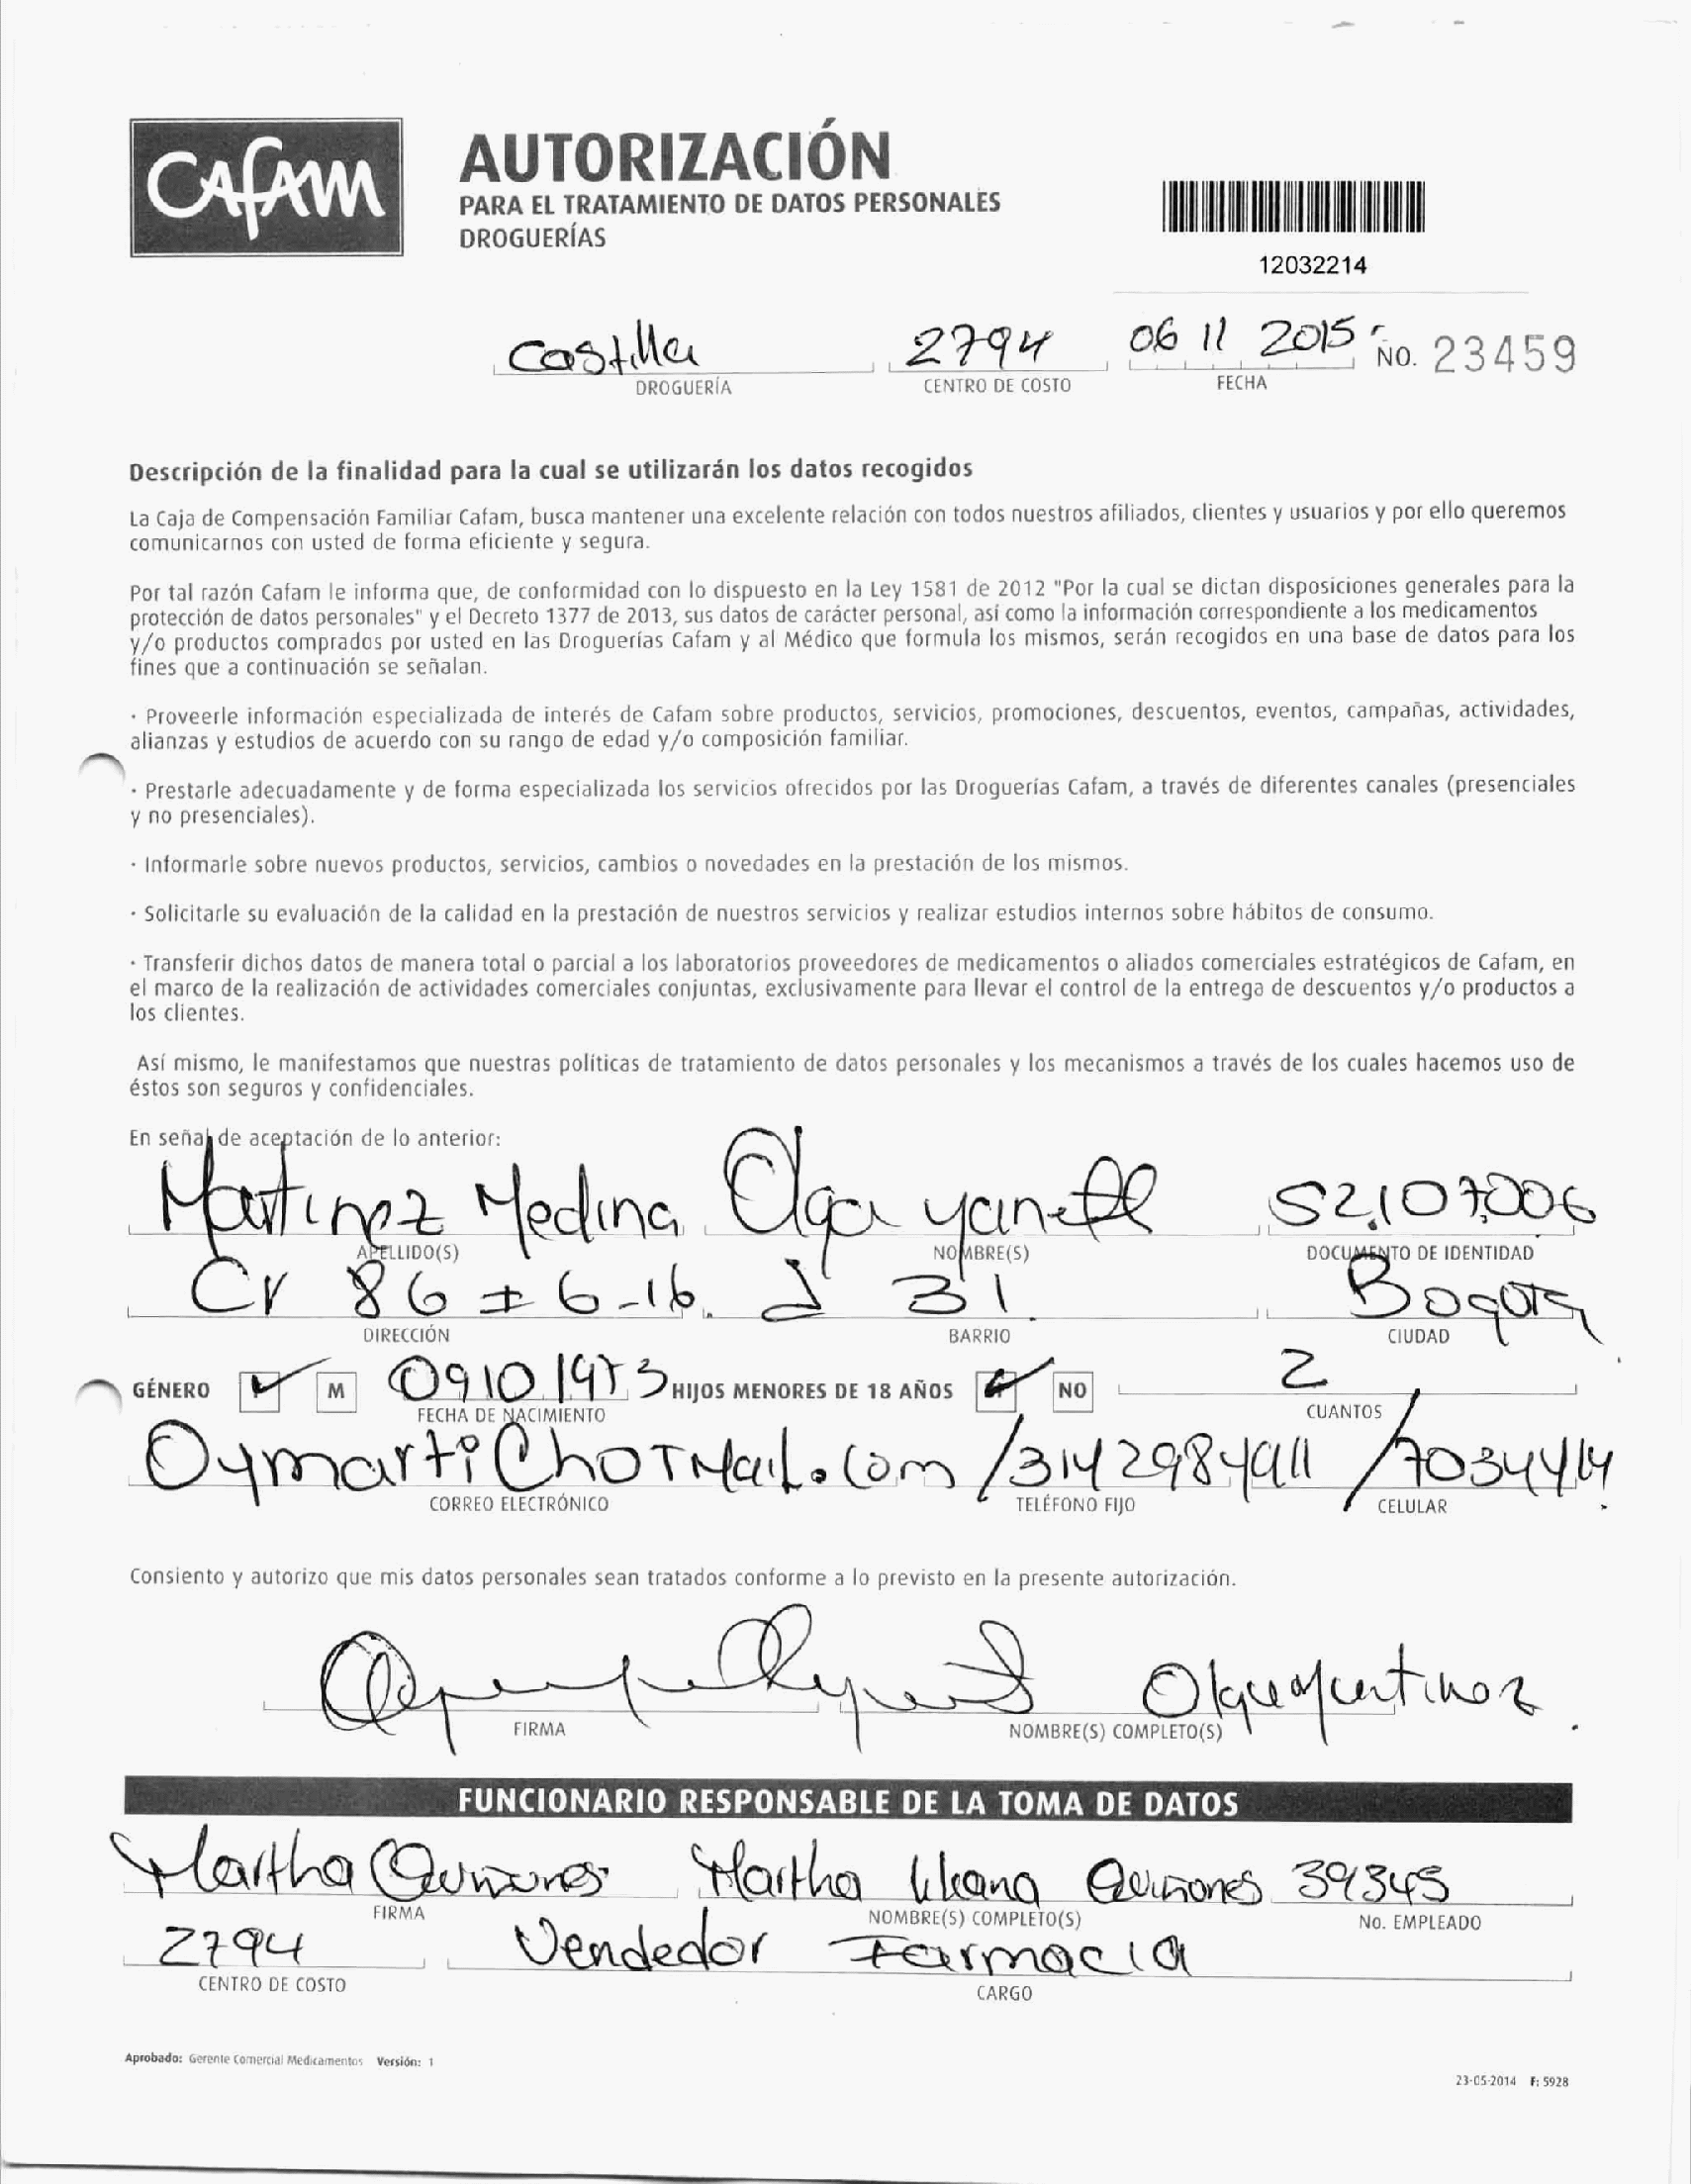 CAFAM
AUTORIZACIÓN
PARA EL TRATAMIENTO DE DATOS PERSONALES
DROGUERÍAS
12032214
Castilla 2794 06 11 2015 No. 23459
DROGUERÍA CENTRO DE COSTO FECHA
Descripción de la finalidad para la cual se utilizarán los datos recogidos
La Caja de Compensación Familiar Cafam, busca mantener una excelente relación con todos nuestros afiliados, clientes y usuarios y por ello queremos
comunicarnos con usted de forma eficiente y segura.
Por tal razón Cafam le informa que, de conformidad con lo dispuesto en la Ley 1581 de 2012 "Por la cual se dictan disposiciones generales para la
protección de datos personales" y el Decreto 1377 de 2013, sus datos de carácter personal, así como la información correspondiente a los medicamentos
y/o productos comprados por usted en las Droguerías Cafam y al Médico que formula los mismos, serán recogidos en una base de datos para los
fines que a continuación se señalan.
· Proveerle información especializada de interés de Cafam sobre productos, servicios, promociones, descuentos, eventos, campañas, actividades,
alianzas y estudios de acuerdo con su rango de edad y/o composición familiar.
· Prestarle adecuadamente y de forma especializada los servicios ofrecidos por las Droguerías Cafam, a través de diferentes canales (presenciales
y no presenciales).
· Informarle sobre nuevos productos, servicios, cambios o novedades en la prestación de los mismos.
· Solicitarle su evaluación de la calidad en la prestación de nuestros servicios y realizar estudios internos sobre hábitos de consumo.
· Transferir dichos datos de manera total o parcial a los laboratorios proveedores de medicamentos o aliados comerciales estratégicos de Cafam, en
el marco de la realización de actividades comerciales conjuntas, exclusivamente para llevar el control de la entrega de descuentos y/o productos a
los clientes.
Así mismo, le manifestamos que nuestras políticas de tratamiento de datos personales y los mecanismos a través de los cuales hacemos uso de
éstos son seguros y confidenciales.
En señal de aceptación de lo anterior:
Martinez Medina Olga yaneth 52.107.006
APELLIDO(S) NOMBRE(S) DOCUMENTO DE IDENTIDAD
Cr 86 # 6-16 31 Bogota
DIRECCIÓN BARRIO CIUDAD
GÉNERO M 09 10 1973 HIJOS MENORES DE 18 AÑOS NO 2
FECHA DE NACIMIENTO CUANTOS
Oymarti@hoTMail.com /3142984911 /7034414
CORREO ELECTRÓNICO TELÉFONO FIJO CELULAR
Consiento y autorizo que mis datos personales sean tratados conforme a lo previsto en la presente autorización.
Olga Martinez
FIRMA NOMBRE(S) COMPLETO(S)
FUNCIONARIO RESPONSABLE DE LA TOMA DE DATOS
Martha Quinones Martha Liliana Quinones 39345
FIRMA NOMBRE(S) COMPLETO(S) No. EMPLEADO
2794 Vendedor Farmacia
CENTRO DE COSTO CARGO
Aprobado: Gerente Comercial Medicamentos Versión: 1
23-05-2014 F: 5928